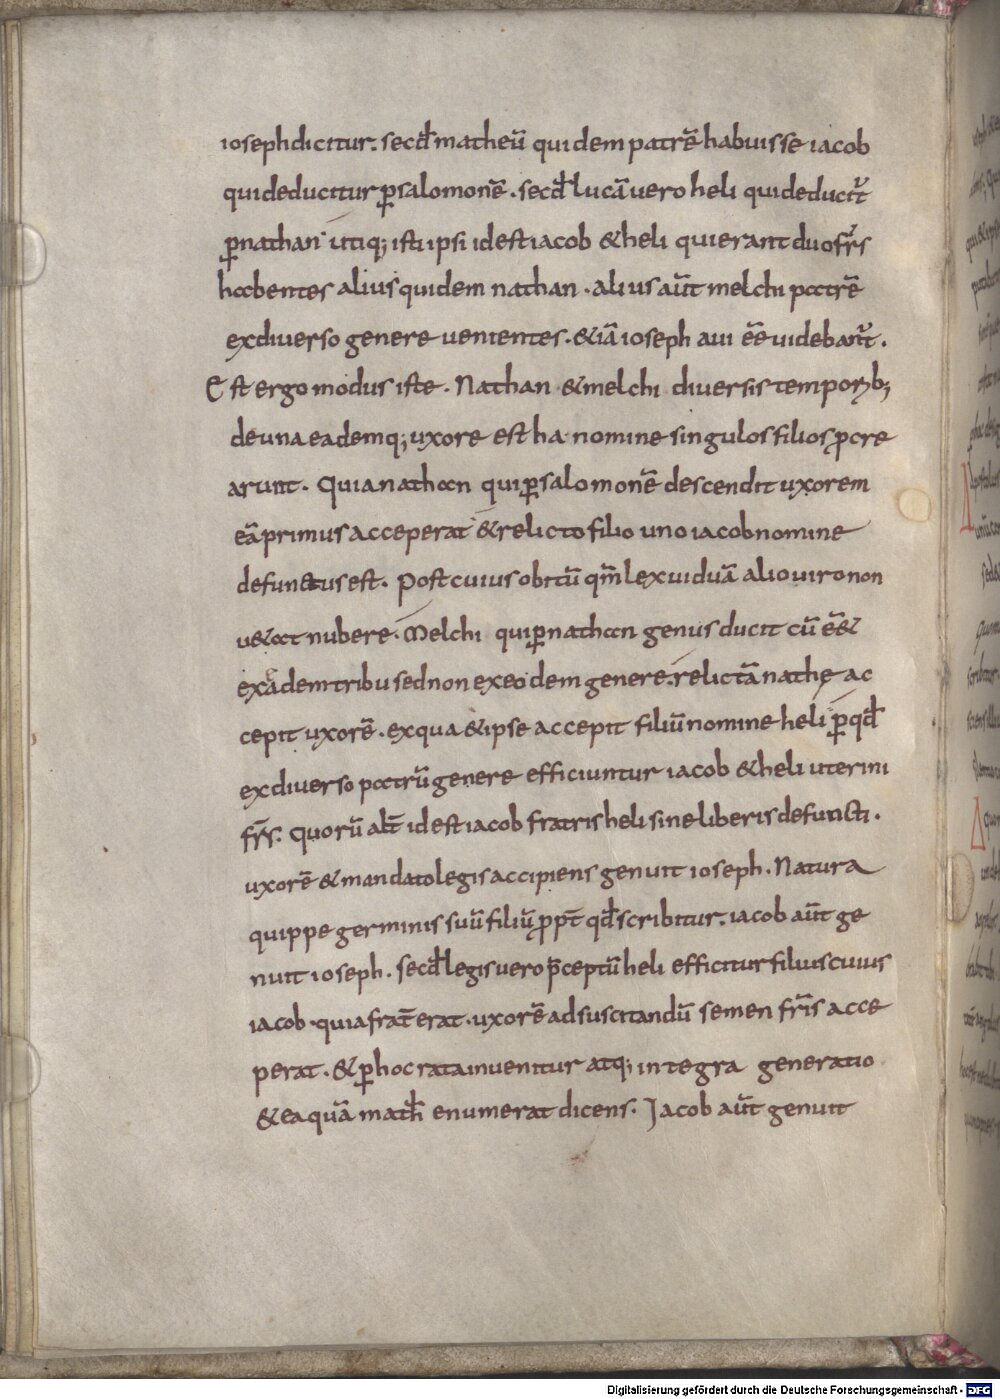 iosephdicitur. secdmatheū quidem patrē habuisse iacob
quideducitur ꝑsalomonē. secd lucā uero heli quideducit᷑
ꝑnathan utiq; isti ipsi idest iacob &heli quierant duo fr̄s
habentes alius quidem nathan. alius aūt melchi patrē
exdiuerso genere uenientes. &iā ioseph aui eē uidebant᷑.
Est ergo modus iste. Nathan &melchi diuersis temporib;
deuna eademq; uxore estha nomine singulos filios ꝓcre
arunt. Quia nathan qui ꝑsalomonē descendit uxorem
eā primus acceperat &relicto filio uno iacob nomine
defunctus est. Post cuius obitū qm̄ lex uiduā alio uiro non
u&at nubere. Melchi qui ꝑnathan genus ducit cū eē&
exeadem tribu sed non exeodem genere. relictā nathę ac
cepit uxorē. exqua &ipse accepit filiū nomine heli ꝑqd
exdiuerso patrū genere efficiuntur iacob &heli uterini
fr̄s. Quorū alt̄ idest iacob fratris heli sine liberis defuncti.
uxorē &mandato legis accipiens genuit ioseph. Natura
quippe germinis suū filiū ꝓpt̄ qd scribitur. iacob aūt ge
nuit ioseph. secd legis uero p̄ceptū heli efficitur filius cuius
iacob quia frat̄ erat. uxorē adsuscitandū semen fr̄is acce
perat. &ꝑ hoc rata inuenitur atq; integra generatio
&ea quā math enumerat dicens. Iacob aūt genuit
Digitalisierung gefördert durch die Deutsche Forschungsgemeinschaft - DFG